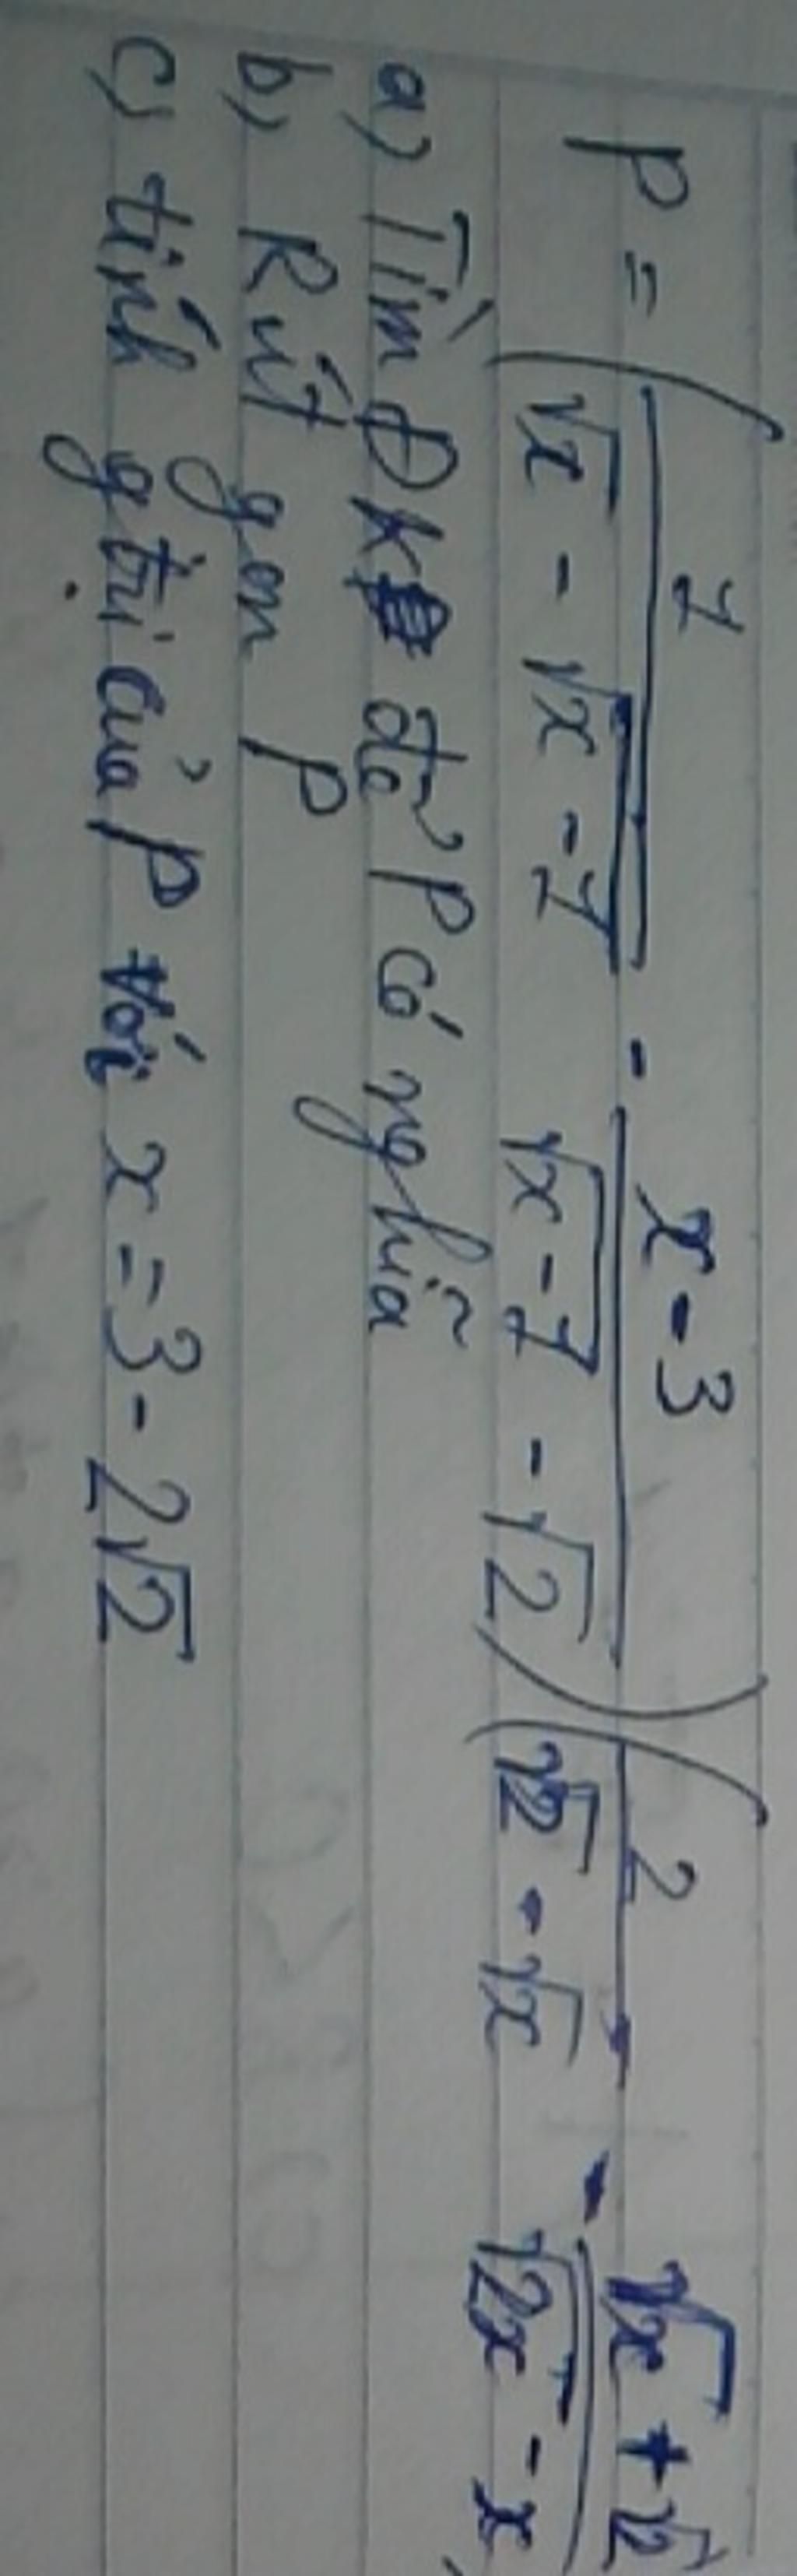 P = ( 1 / (√x - √(x - 1)) - (x - 3) / (√(x - 1) - √2) ) ( 2 / (√2 - √x) - (√x + √2) / (√2x - x)
a) Tìm ĐK để P có nghĩa
b) Rút gọn P
c) tính g trị của P với x = 3 - 2√2